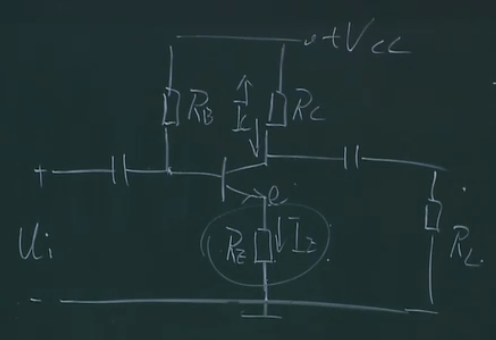 +Vcc
RB
Ic
RC
+
e
Ui
RE
IE
RL
-